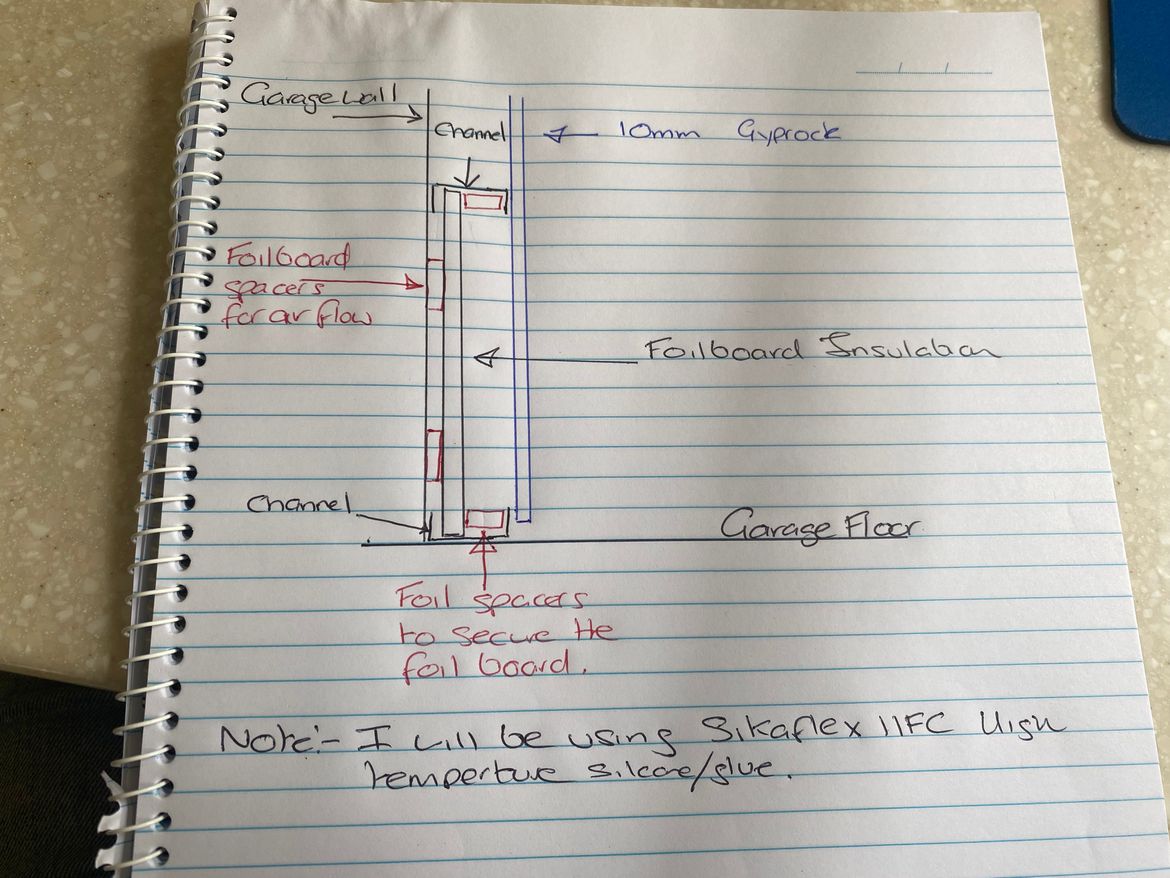 Garage wall
Channel
10mm Gyprock
Foilboard
spacers
for air flow
Foilboard Insulation
Channel
Garage Floor
Foil spacers
to secure the
foil board.
Note:- I will be using Sikaflex 11FC High
temperture silcone/glue.